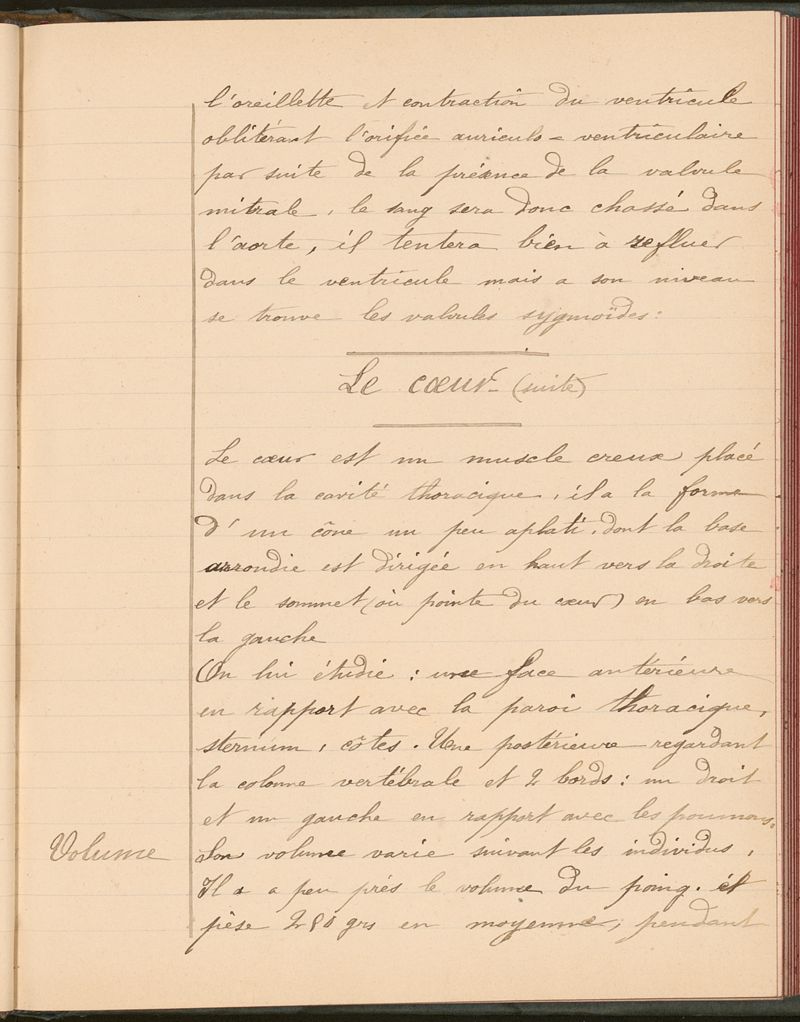 l'oreillette et contraction du ventricule
oblitérant l'orifice auriculo = ventriculaire
par suite de la présence de la valvule
mitrale, le sang sera donc chassé dans
l'aorte, il tentera bien à refluer
dans le ventricule mais a son niveau
se trouve les valvules sygmoïdes:
Le cœur (suite)
Le cœur est un muscle creux placé
dans la cavité thoracique, il a la forme
d'un cône un peu aplati, dont la base
arrondie est dirigée en haut vers la droite
et le sommet (ou pointe du cœur) en bas vers
la gauche
On lui étudie : une face antérieure
en rapport avec la paroi thoracique,
sternum, côtes. Une postérieure regardant
la colonne vertébrale et 2 bords : un droit
et un gauche en rapport avec les poumons.
Volume
Son volume varie suivant les individus,
Il a a peu prés le volume du poing. et
pèse 280 grs en moyenne, pendant